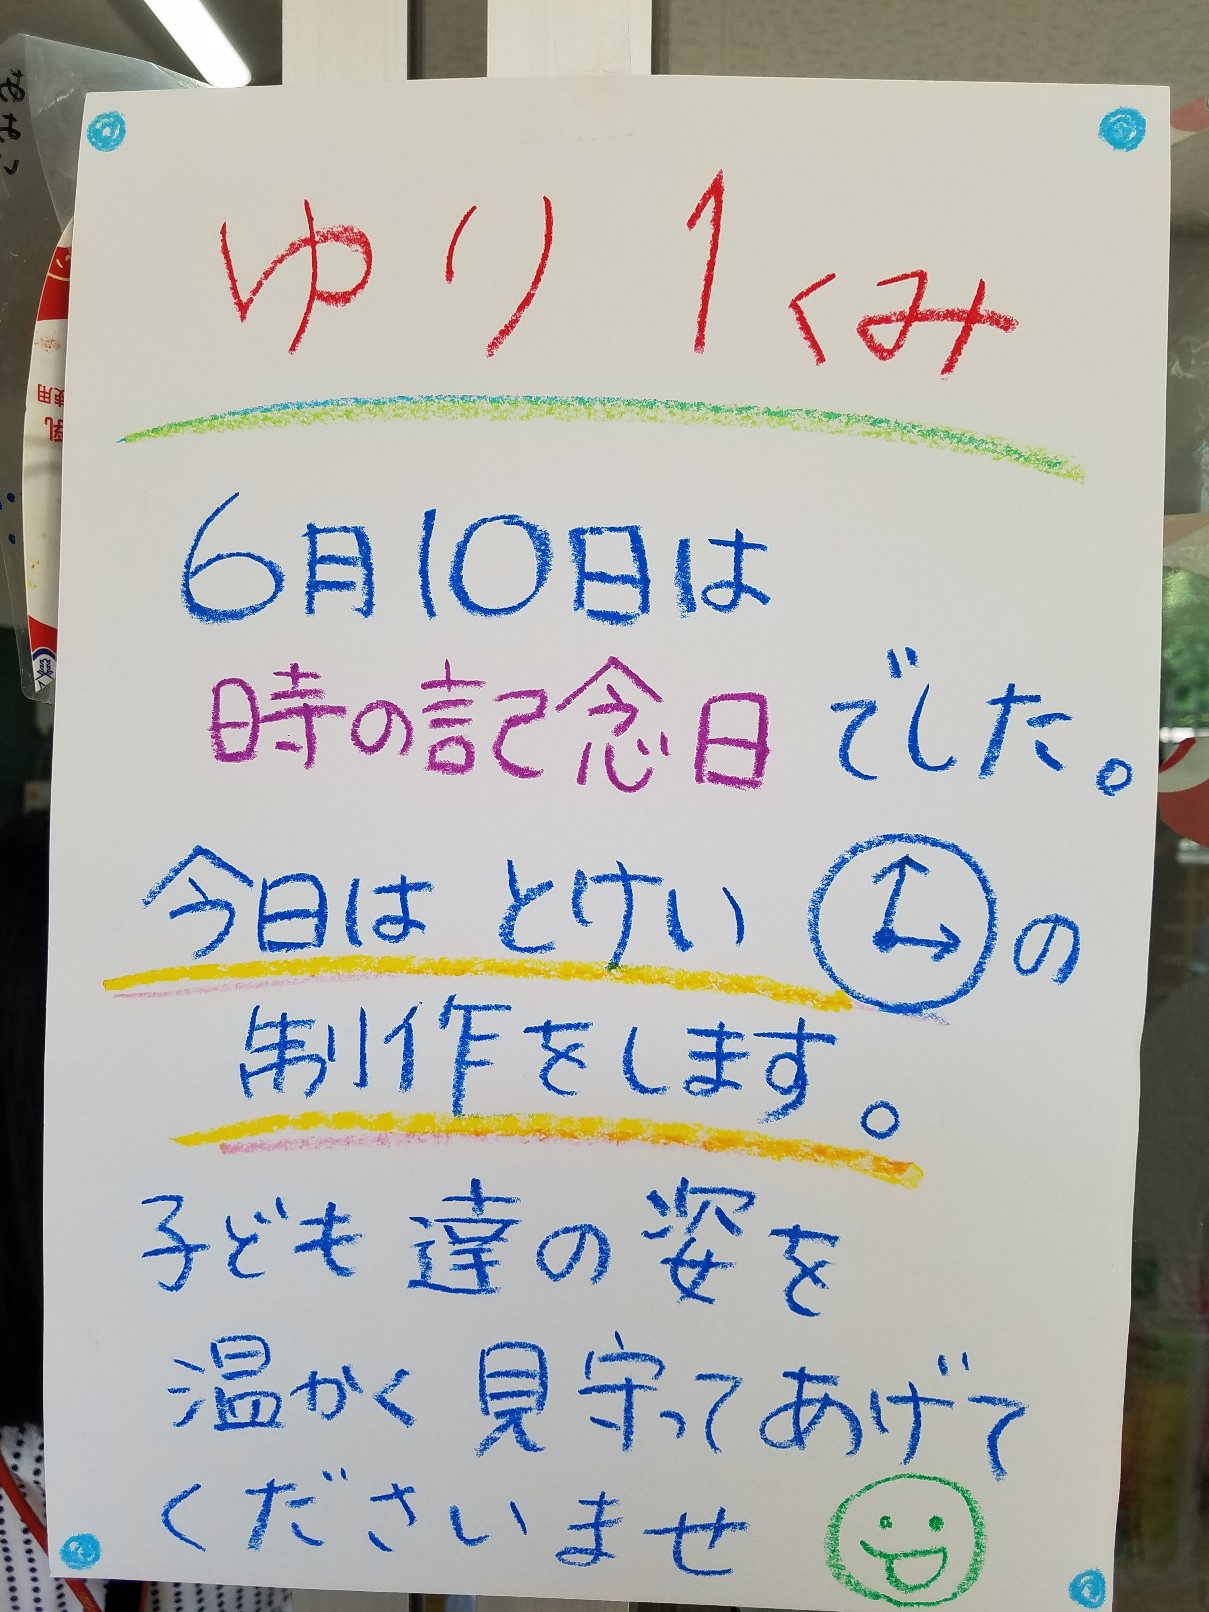 ゆり1くみ
6月10日は
時の記念日でした。
今日はとけいの
制作をします。
子ども達の姿を
温かく見守ってあげて
くださいませ